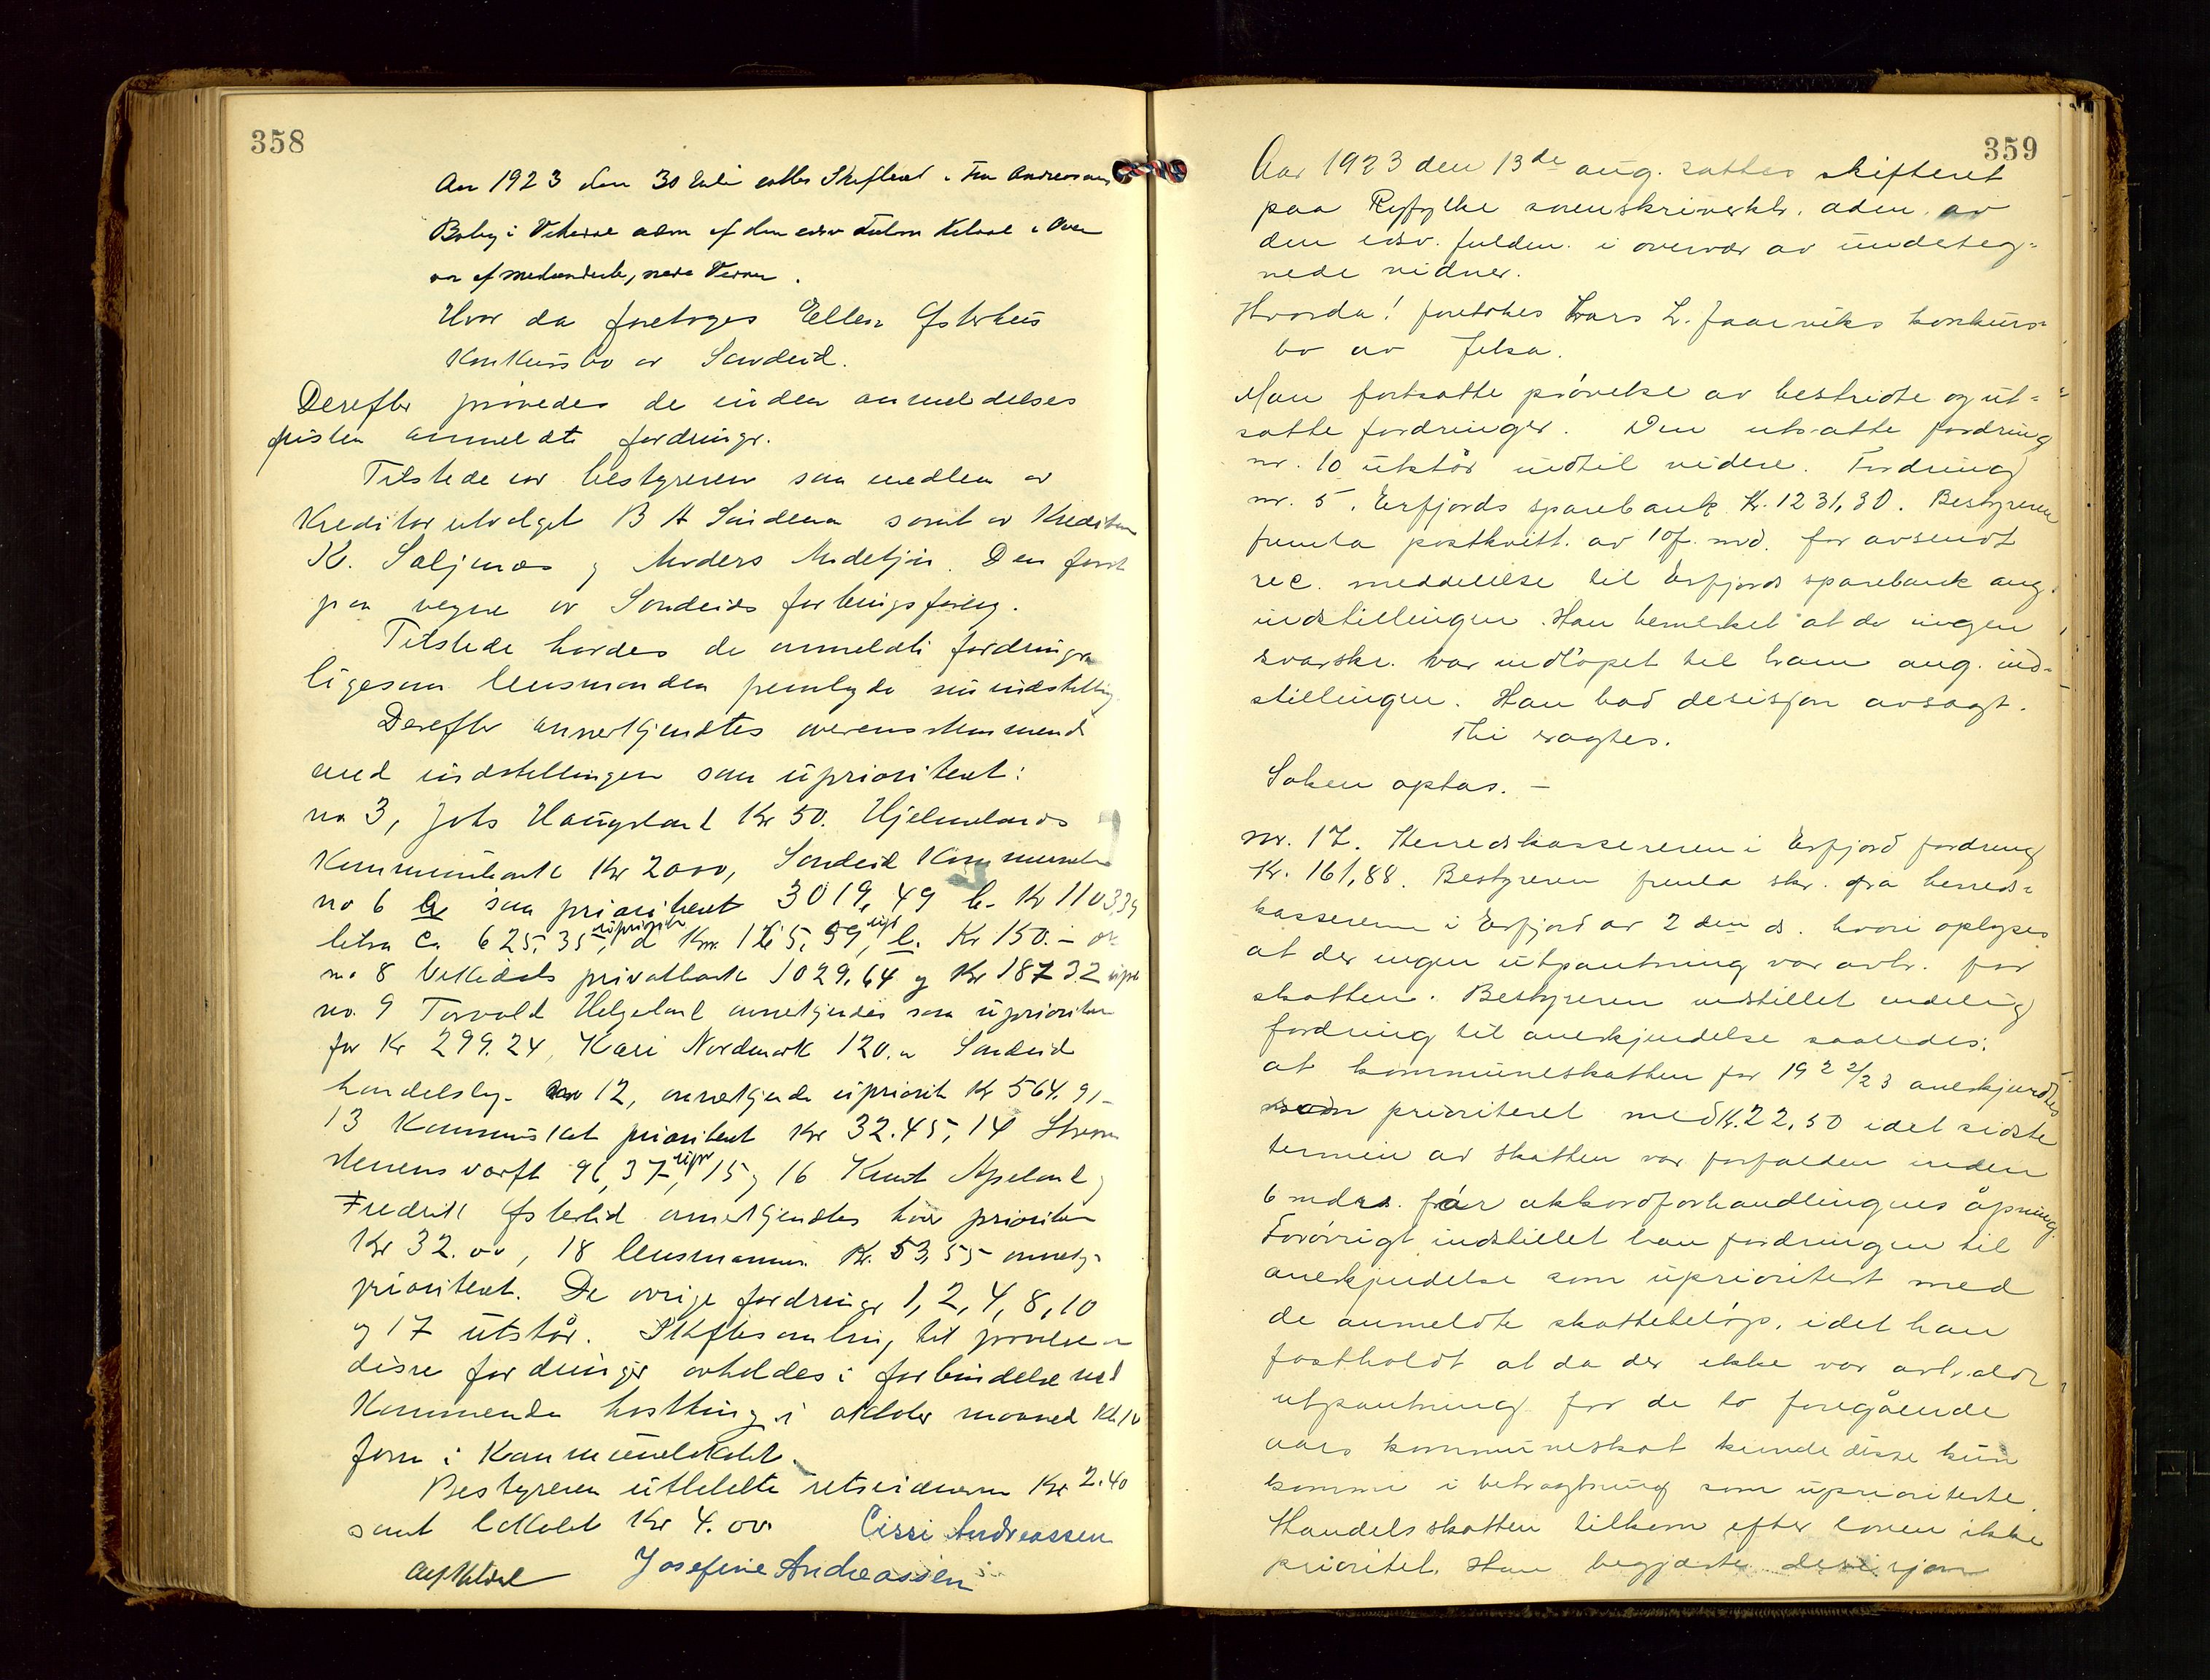 358
Aar 1923 den 30 Juli sattes Skifteret i Fru Andreassens
Bolig i Vikedal adm af den edsv Fuldm Kildal i Over
vær af medundert, Vidner.
Hvor da foretoges Ellen Østerhus
Konkursbo av Sandeid.
Derefter prøvedes de inden anmeldelses
fristen anmeldte fordringr.
Tilstede var bestyreren som medlem av
Kreditorutvalget B H Sandeen samt av Kreditorer
K. Saljenæs og Anders Mideltjin. Den først
paa vegne av Sandeids forbrugsforeng.
Tilstede havdes de anmeldte fordringer
ligesom lensmanden fremlagde sin indstilling
Derefter annerkjendtes overensstemmende
med indstillingen som uprioritert:
no 3, Johs Haugeland Kr 50. Hjelmelands
Kommunebank Kr 2000, Sandeid Kommune
no 6 a som prioritert 3019,49 b. Kr 1103,39
litra c. 625,35, uprioritr d Kr. 165,59, upr e. Kr 150.- og
no 8 Vikedals privatbank 1029.64 og Kr 1873.2 upr
no. 9 Torvald Helgeland annerkjendes som uprioriter
for Kr 299.24, Kari Nordmark 120.- Sandeid
handelslag no 12, annerkjende upriorit Kr 564.91-
13 Kommuneskat prioritert Kr 32.45, 14 Strøm
stenens værft 96,37, upr 15 og 16 Knut Apeland og
Fredrik Østerlid annerkjendtes hver prioriter
Kr 32.00, 18 lensmannen Kr. 53,55 annerkj-
prioritert. De øvrige fordringr 1, 2, 4, 8, 10
og 17 utstår. Skiftesamling til prøvelse av
disse fordringer avholdes i forbindelse med
Kommende høstting i oktober maaned Kl 10
form i Kommunelokalet.
Bestyreren utbetalte retsvidnerne Kr 2.40
samt lokalet Kr 4.00. Cissi Andreassen
Alf Kildal Josefine Andreassen
359
Aar 1923 den 13de aug. sattes skifteret
paa Ryfylke sorenskriverktr. adm. av
den edsv. fuldm. i overvær av undeteg-
nede vidner.
Hvorda! foretokes Lars L. Jaarviks konkurs-
bo av Jelsa.
Man fortsatte prøvelse av bestridte og ut-
satte fordringer. Den utsatte fordring
nr. 10 utstår indtil videre. Fordring
nr. 5, Erfjords sparebank Kr. 1231,30. Bestyreren
fremla postkvitt. av 10f. md. for avsendt
rec. meddelelse til Erfjords sparebank ang.
indstillingen. Han bemerket at de ingen
svarskr. var indløpet til ham ang. ind-
stillingen. Han bad desisjon avsagt.
Thi sagtes.
Saken optas. -
nr. 17. Herredskassereren i Erfjord fordring
Kr. 161,88. Bestyreren fremla skr. fra herreds-
kassereren i Erfjord av 2 den ds. hvori oplyses
at der ingen utpantning var avh. for
skatten. Bestyreren indstillet endelig
fordring til anerkjendelse saaledes:
at kommuneskatten for 1922/23 anerkjendtes
som prioritert med Kr. 22,50 idet sidste
termin av skatten var forfalden inden
6 mdrs. før akkordforhandlingenes åpning.
Forøvrigt indstillet han fordringen til
anerkjendelse som uprioritert med
de anmeldte skattebeløp, idet han
fastholdt at da der ikke var avholdt
utpantning for de to foregående
aars kommuneskat kunde disse kun
komme i betragtning som uprioriterte.
Handelsskatten tilkom efter loven ikke
prioritet. Han begjærte desisjon